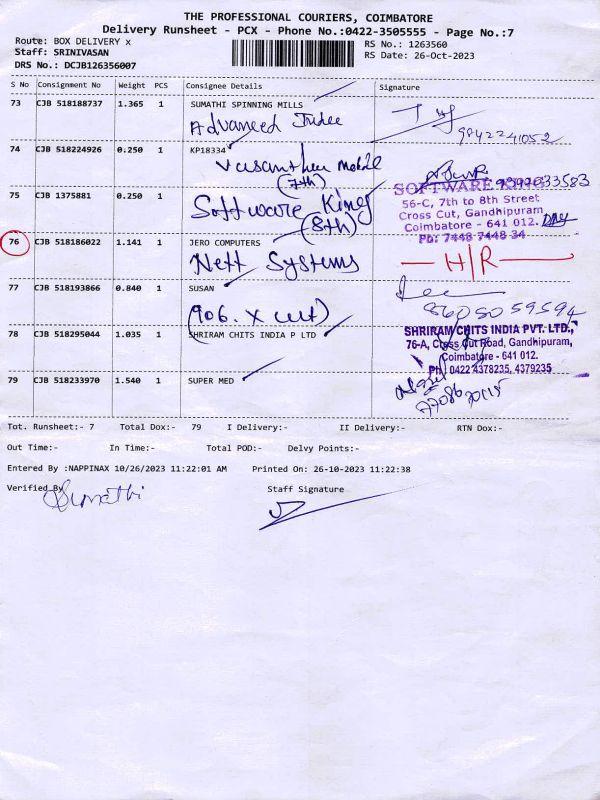 THE PROFESSIONAL COURIERS, COIMBATORE
Delivery Runsheet - PCX - Phone No.:0422-3505555 - Page No.:7
Route: BOX DELIVERY x
Staff: SRINIVASAN
DRS No.: DCJB126356007
RS No.: 1263560
RS Date: 26-Oct-2023
S No Consignment No Weight PCS Consignee Details Signature
73 CJB 518188737 1.365 1 SUMATHI SPINNING MILLS
Advanced
9842241052
74 CJB 518224926 0.250 1 KP18334
(7th)
75 CJB 1375881 0.250 1
Software King
(8th)
SOFTWARE KING
56-C, 7th to 8th Street
Cross Cut, Gandhipuram,
Coimbatore - 641 012.
Ph: 7448 7448 34
76 CJB 518186022 1.141 1 JERO COMPUTERS
Nett Systems
H/R
77 CJB 518193866 0.840 1 SUSAN
(906. X cut)
8605059594
78 CJB 518295044 1.035 1 SHRIRAM CHITS INDIA P LTD
SHRIRAM CHITS INDIA PVT. LTD.,
76-A, Cross Cut Road, Gandhipuram,
Coimbatore - 641 012.
Ph: 0422 4378235, 4379235
79 CJB 518233970 1.540 1 SUPER MED
Tot. Runsheet:- 7 Total Dox:- 79 I Delivery:- II Delivery:- RTN Dox:-
Out Time:- In Time:- Total POD:- Delvy Points:-
Entered By :NAPPINAX 10/26/2023 11:22:01 AM Printed On: 26-10-2023 11:22:38
Verified By Staff Signature
Sumathi